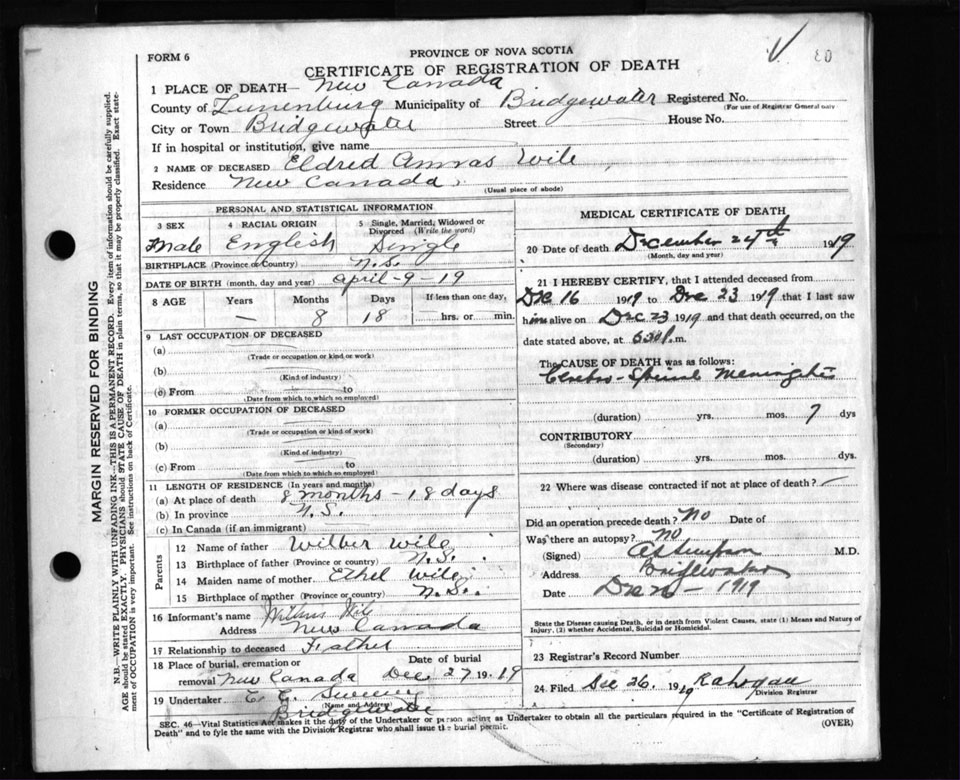 FORM 6
PROVINCE OF NOVA SCOTIA
CERTIFICATE OF REGISTRATION OF DEATH
1 PLACE OF DEATH— New Canada
County of Lunenburg Municipality of Bridgewater Registered No.
(For use of Registrar General only
City or Town Bridgewater Street House No.
If in hospital or institution, give name
2 NAME OF DECEASED Eldred Wile
Residence New Canada
(Usual place of abode)
PERSONAL AND STATISTICAL INFORMATION
3 SEX 4 RACIAL ORIGIN 5 Single, Married, Widowed or Divorced (Write the word)
Male English Single
BIRTHPLACE (Province or Country) N.S.
DATE OF BIRTH (month, day and year) April-9-19
8 AGE Years Months Days If less than one day,
— 8 18 hrs. or min.
9 LAST OCCUPATION OF DECEASED
(a)
(Trade or occupation or kind of work)
(b)
(Kind of industry)
(c) From to
(Date from which to which so employed)
10 FORMER OCCUPATION OF DECEASED
(a)
(Trade or occupation or kind of work)
(b)
(Kind of industry)
(c) From to
(Date from which to which so employed)
11 LENGTH OF RESIDENCE (In years and months)
(a) At place of death 8 months - 18 days
(b) In province N.S.
(c) In Canada (if an immigrant)
Parents
12 Name of father Wilber Wile
13 Birthplace of father (Province or country) N.S.
14 Maiden name of mother Ethel Wile
15 Birthplace of mother (Province or country) N.S.
16 Informant's name Wile
Address New Canada
17 Relationship to deceased Father
18 Place of burial, cremation or removal New Canada Date of burial Dec 27 19 19
19 Undertaker
(Name and Address)
Bridgewater
MEDICAL CERTIFICATE OF DEATH
20 Date of death December 24th 1919
(Month, day and year)
21 I HEREBY CERTIFY, that I attended deceased from
Dec 16 1919 to Dec 23 1919 that I last saw
him alive on Dec 23 1919 and that death occurred, on
date stated above, at m.
The CAUSE OF DEATH was as follows:
Cerebro-Spinal Meningitis
(duration) yrs. mos. 7 dys
CONTRIBUTORY
(Secondary)
(duration) yrs. mos. dys.
22 Where was disease contracted if not at place of death? —
Did an operation precede death? No Date of
Was there an autopsy? No
(Signed) M.D.
Address Bridgewater
Date Dec 1919
State the Disease causing Death, or in death from Violent Causes, state (1) Means and Nature of
Injury, (2) whether Accidental, Suicidal or Homicidal.
23 Registrar's Record Number
24. Filed Dec 26. 1919
Division Registrar
SEC. 46—Vital Statistics Act makes it the duty of the Undertaker or person acting as Undertaker to obtain all the particulars required in the "Certificate of Registration of
Death" and to fyle the same with the Division Registrar who shall issue the burial permit. (OVER)
MARGIN RESERVED FOR BINDING
N.B.—WRITE PLAINLY WITH UNFADING INK—THIS IS A PERMANENT RECORD. Every item of information should be carefully supplied.
AGE should be stated EXACTLY. PHYSICIANS should STATE CAUSE OF DEATH in plain terms, so that it may be properly classified. Exact state-
ment of OCCUPATION is very important. See instructions on back of Certificate.